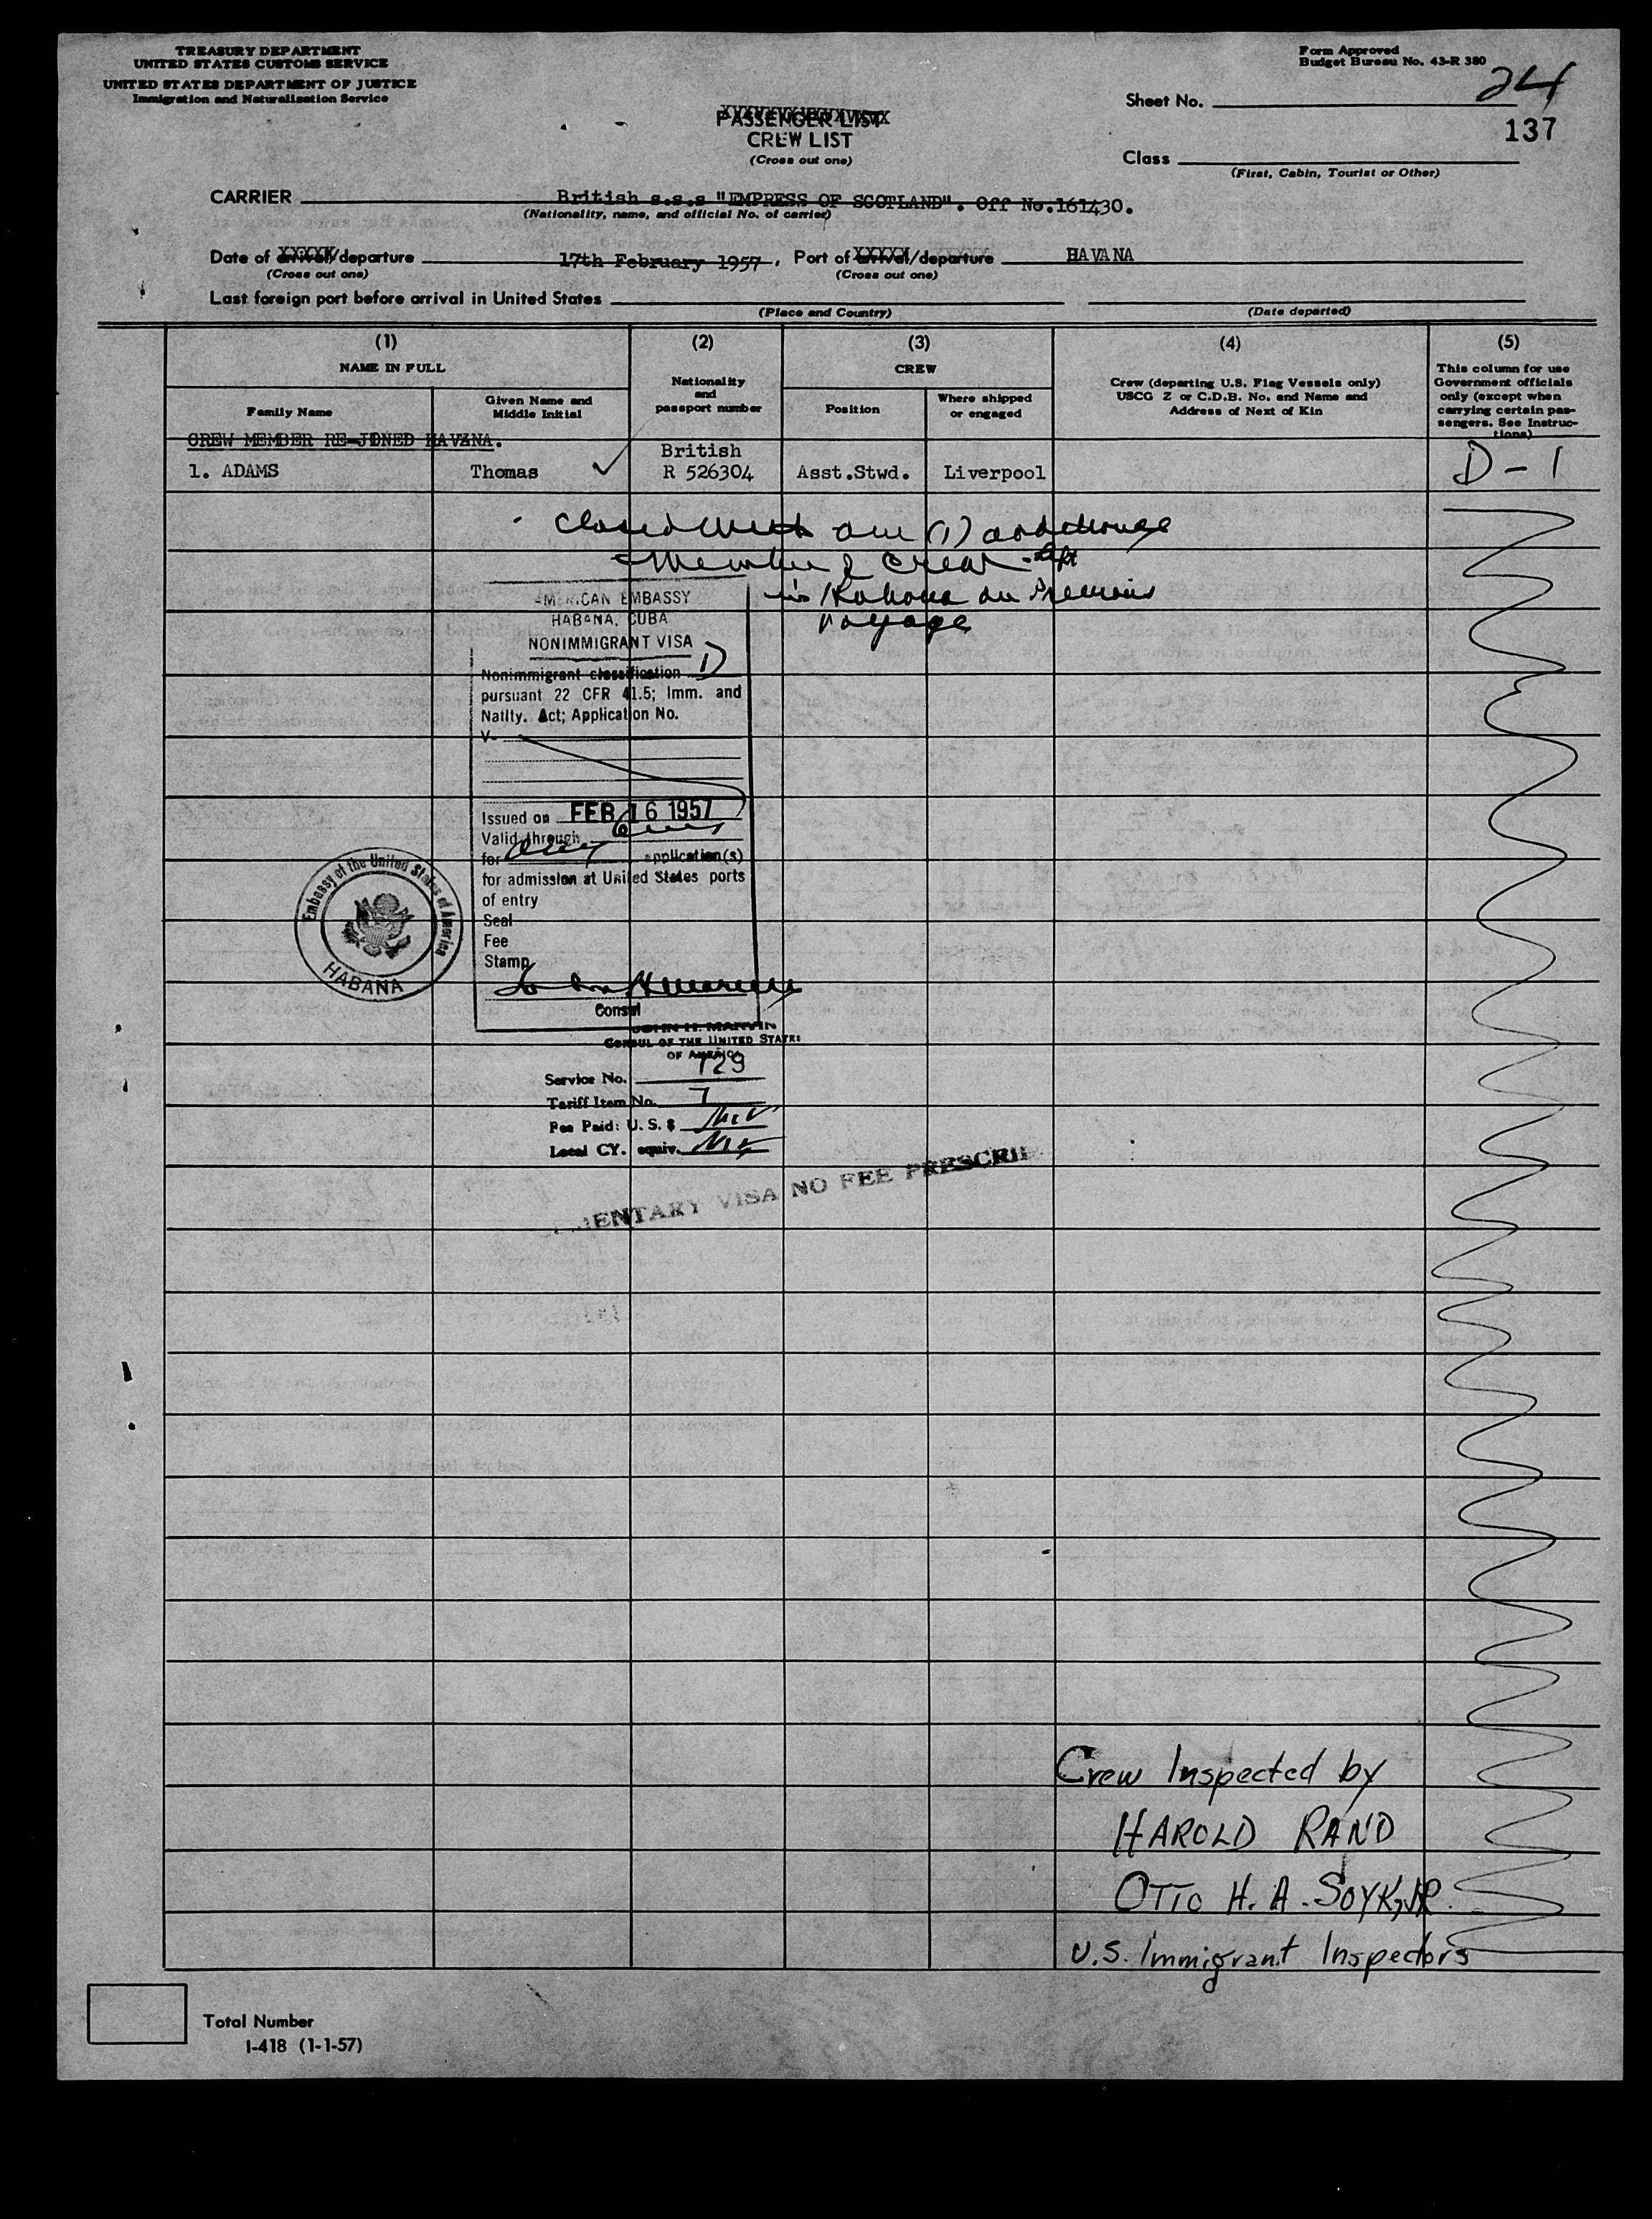 TREASURY DEPARTMENT
UNITED STATES CUSTOMS SERVICE
UNITED STATES DEPARTMENT OF JUSTICE
Immigration and Naturalization Service
Form Approved
Budget Bureau No. 43-R 380
Sheet No. 24
137
PASSENGER LIST
CREW LIST
(Cross out one)
Class
(First, Cabin, Tourist or Other)
CARRIER British s.s.s "EMPRESS OF SCOTLAND". Off No.161430.
(Nationality, name, and official No. of carrier)
Date of arrival/departure 17th February 1957. Port of arrival/departure HAVANA
(Cross out one) (Cross out one)
Last foreign port before arrival in United States
(Place and Country) (Date departed)
(1) (2) (3) (4) (5)
NAME IN FULL
Family Name
Given Name and
Middle Initial
Nationality
and
passport number
CREW
Position
Where shipped
or engaged
Crew (departing U.S. Flag Vessels only)
USCG Z or C.D.B. No. and Name and
Address of Next of Kin
This column for use
Government officials
only (except when
carrying certain pas-
sengers. See Instruc-
tions)
CREW MEMBER RE-JOINED HAVANA.
British
1. ADAMS Thomas ✓ R 526304 Asst.Stwd. Liverpool D-1
Closed with one (1) additional
Member of Crew left
in Habana on Previous
Voyage
AMERICAN EMBASSY
HABANA, CUBA
NONIMMIGRANT VISA
Nonimmigrant classification D
pursuant 22 CFR 41.5; Imm. and
Natlty. Act; Application No.
V-
Issued on FEB 16 1957
Valid through
for application(s)
for admission at United States ports
of entry
Seal
Fee
Stamp
Consul
JOHN H. MARVIN
CONSUL OF THE UNITED STATES
OF AMERICA
Embassy of the United States of America
HABANA
Service No. 729
Tariff Item No. 7
Fee Paid: U.S. $
Local CY. equiv.
VISA NO FEE
Crew Inspected by
HAROLD RAND
OTTO H. A. SOYK, JR.
U.S. Immigrant Inspectors
Total Number
I-418 (1-1-57)